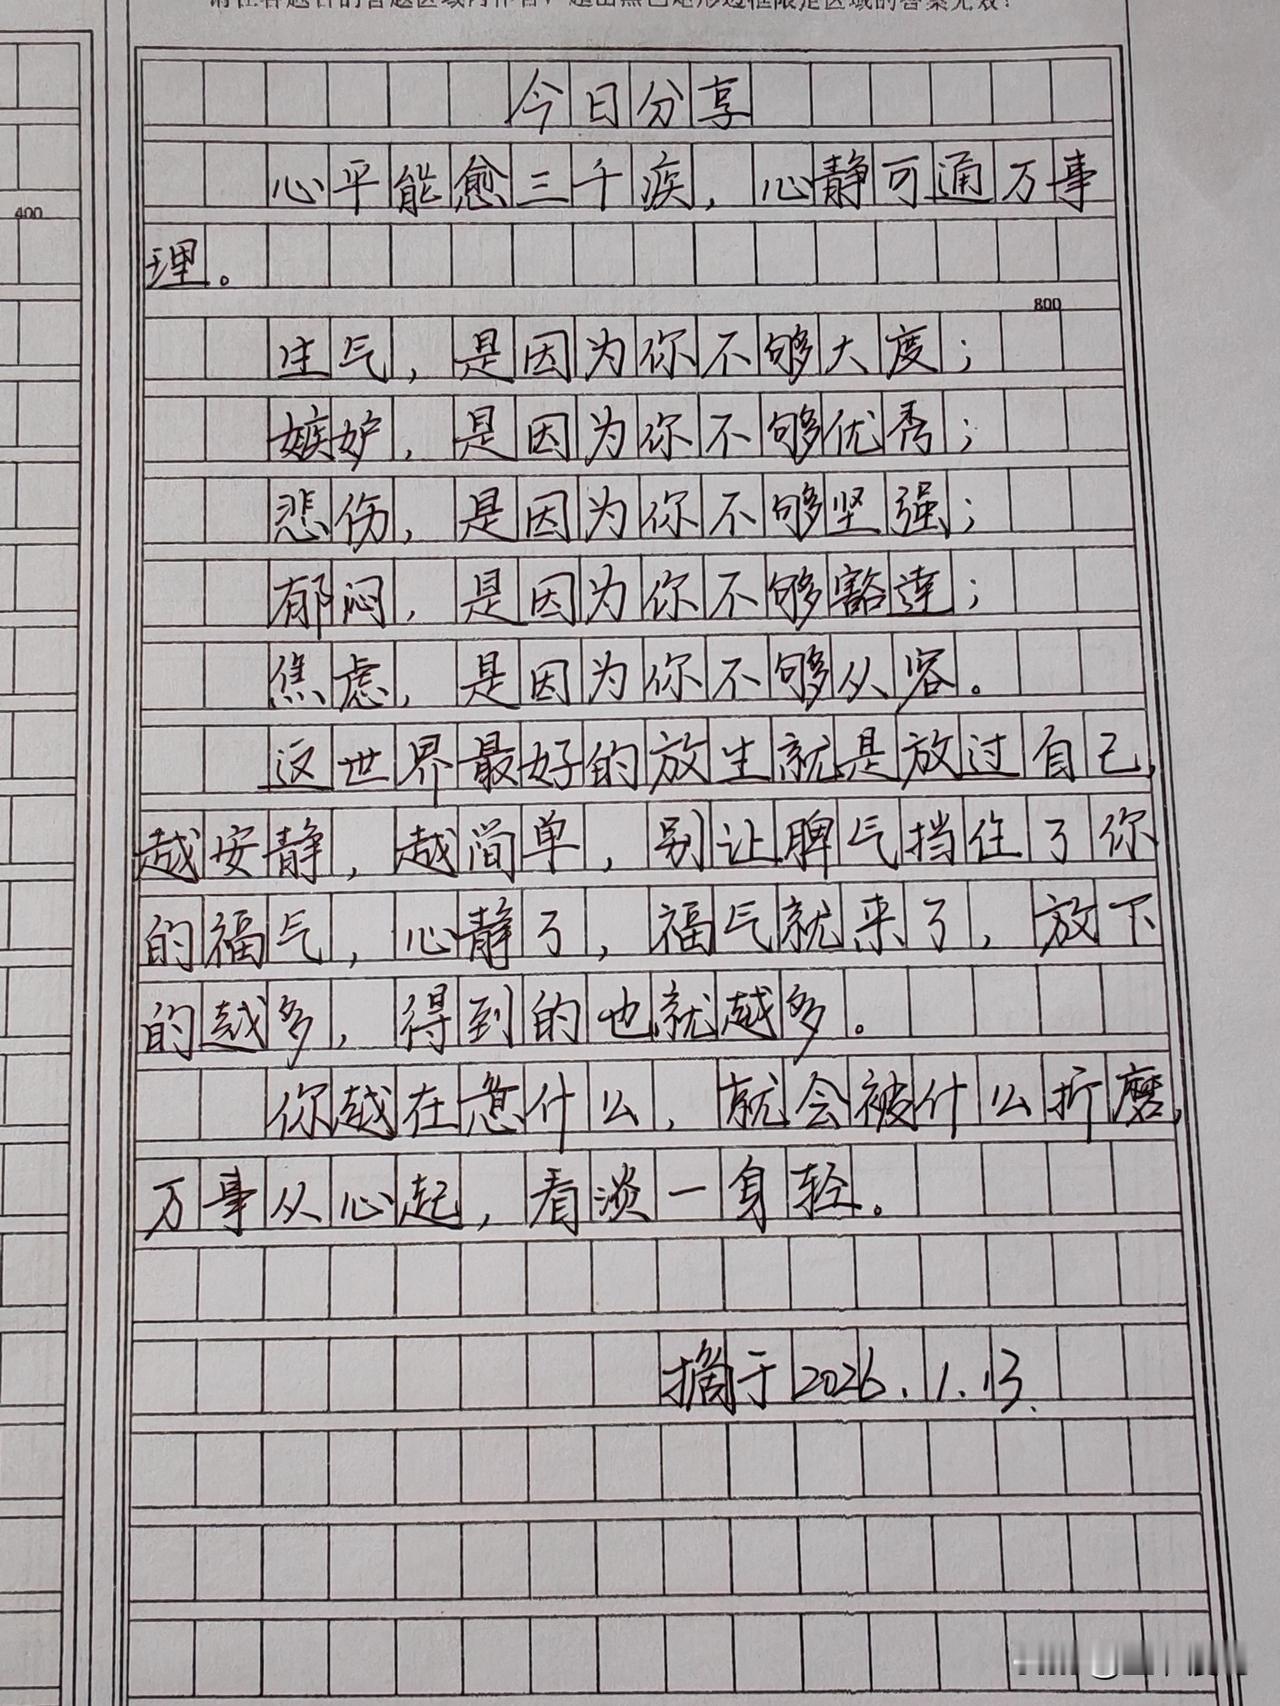 请在各题目的答题区域内作答，超出黑色矩形边框限定区域的答案无效！
今日分享
心平能愈三千疾，心静可通万事
理。
400
800
生气，是因为你不够大度；
嫉妒，是因为你不够优秀；
悲伤，是因为你不够坚强；
郁闷，是因为你不够豁达；
焦虑，是因为你不够从容。
这世界最好的放生就是放过自己，
越安静，越简单，别让脾气挡住了你
的福气，心静了，福气就来了，放下
的越多，得到的也就越多。
你越在意什么，就会被什么折磨，
万事从心起，看淡一身轻。
摘于2026.1.13.